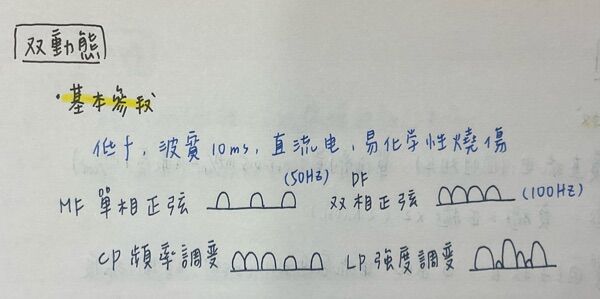 双動態
・基本參数
低f, 波寬10ms, 直流电, 易化学性燒傷
(50Hz) DF
MF 單相正弦 双相正弦 (100Hz)
CP 頻率調变 LP 強度調变